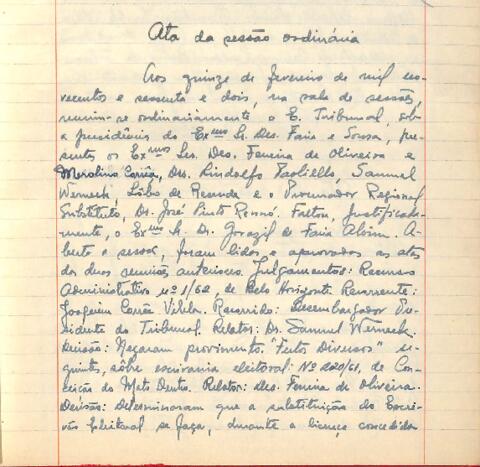 Ata da sessão ordinária
Aos quinze de fevereiro de mil no-
vecentos e sessenta e dois, na sala de sessões,
reuniu-se ordinariamente o E. Tribunal, sob
a presidência do Exmo Sr. Des. Faria e Sousa, pre-
sentes os Exmos Srs. Des. Ferreira de Oliveira e
Merolino Corrêa, Drs. Lindolfo Paoliello, Samuel
Werneck, Lôbo de Resende e o Procurador Regional
Substituto, Dr. José Pinto Rennó. Faltou, justificada-
mente, o Exmo Sr. Dr. Gorazil de Faria Alvim. A-
berta a sessão, foram lidas e aprovadas as atas
das duas reuniões anteriores. Julgamentos: Recurso
Administrativo nº 1/62, de Belo Horizonte Recorrente:
Joaquim Corrêa Vilela. Recorrido: Desembargador Pre-
sidente do Tribunal. Relator: Dr. Samuel Werneck.
Decisão: Negaram provimento. "Feitos Diversos" se-
guintes, sôbre escrivania eleitoral: Nº 220/61, de Con-
ceição do Mato Dentro. Relator: Des. Ferreira de Oliveira.
Decisão: Determinaram que a substituição do Escri-
vão Eleitoral se faça, durante a licença concedida